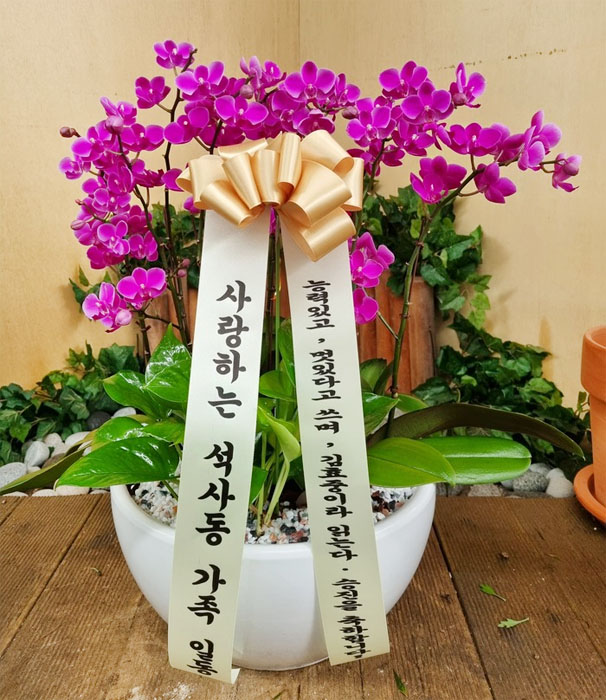 사랑하는 석사동 가족 일동
능력있고, 멋있다고 쓰며, 김표중이라 읽는다. 승진을 축하합니다